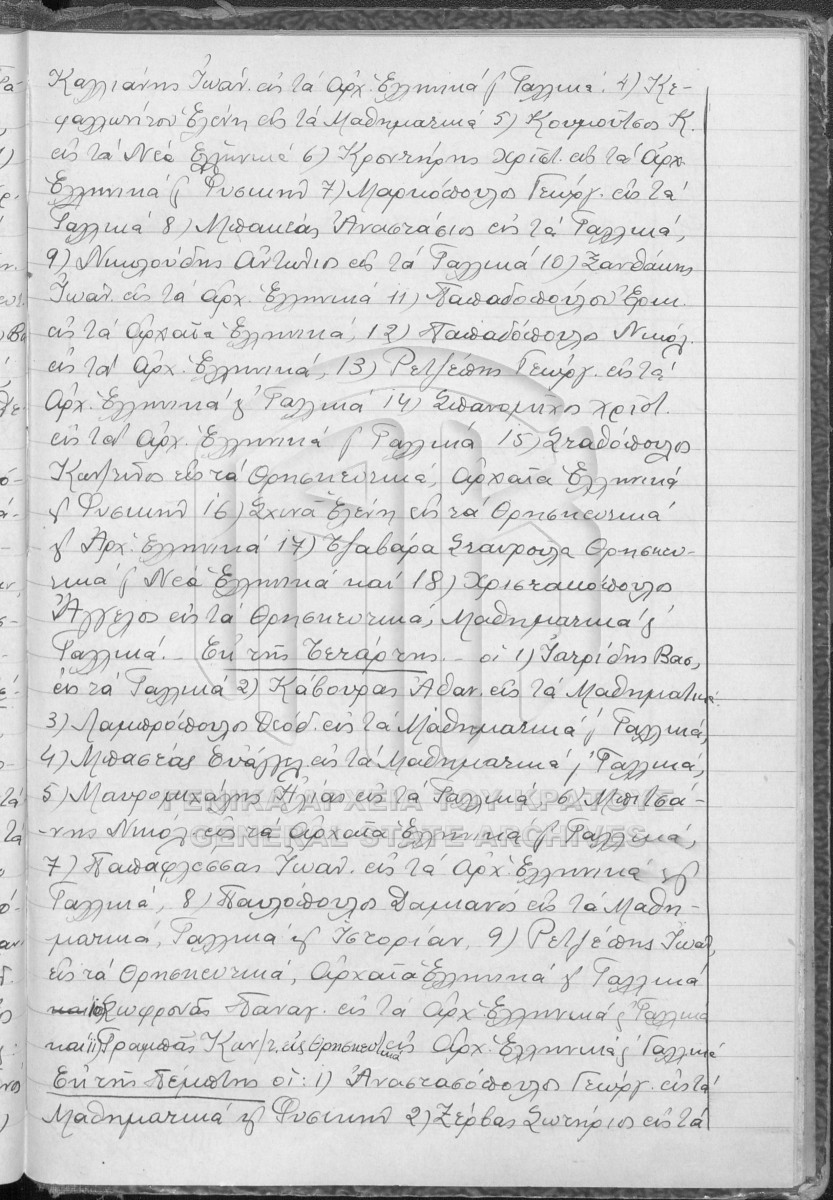 Καλλιάνης Ἰωάν. εἰς τά Ἀρχ. Ἑλληνικά & Γαλλικά. 4) Κε-
φαλλωνίτου Ἑλένη εἰς τά Μαθηματικά 5) Κουμοῦτσος Κ.
εἰς τά Νέα Ἑλληνικά 6) Κροντήρης Χρῖστ. εἰς τά Ἀρχ.
Ἑλληνικά & Φυσικήν 7) Μαρκόπουλος Γεώργ. εἰς τά
Γαλλικά 8) Μπακέας Ἀναστάσιος εἰς τά Γαλλικά,
9) Νικολούδης Ἀντώνιος εἰς τά Γαλλικά 10) Ξανθάκης
Ἰωάν. εἰς τά Ἀρχ. Ἑλληνικά 11) Παπαδοπούλου
εἰς τά Ἀρχαῖα Ἑλληνικά, 12) Παπαδόπουλος Νικόλ.
εἰς τά Ἀρχ. Ἑλληνικά, 13) Ρετζέπης Γεώργ. εἰς τά
Ἀρχ. Ἑλληνικά & Γαλλικά 14) Σπανομῆχος Χρῖστ.
εἰς τά Ἀρχ. Ἑλληνικά & Γαλλικά 15) Σταθόπουλος
Κων/τῖνος εἰς τά Θρησκευτικά, Ἀρχαῖα Ἑλληνικά
& Φυσικήν 16) Σχινᾶ Ἑλένη εἰς τά Θρησκευτικά
& Ἀρχ. Ἑλληνικά 17) Τζαβάρα Σταυρούλα Θρησκευ-
τικά & Νέα Ἑλληνικά καί 18) Χριστακόπουλος
Ἄγγελος εἰς τά Θρησκευτικά, Μαθηματικά &
Γαλλικά. – Ἐκ τῆς Τετάρτης. – οἱ 1) Ἰατρίδης Βασ,
εἰς τά Γαλλικά 2) Κάβουρας Ἀθαν. εἰς τά Μαθηματικά
3) Λαμπρόπουλος Θεοδ. εἰς τά Μαθηματικά & Γαλλικά,
4) Μπασέας Εὐάγγελ εἰς τά Μαθηματικά & Γαλλικά,
5) Μαυρομιχάλης Ἠλίας εἰς τά Γαλλικά 6) Μπιτσά-
-νης Νικόλ εἰς τά Ἀρχαῖα Ἑλληνικά & Γαλλικά,
7) Παπαφλέσσας Ἰωάν. εἰς τά Ἀρχ. Ἑλληνικά &
Γαλλικά, 8) Παυλόπουλος Δαμιανός εἰς τά Μαθη-
ματικά, Γαλλικά & Ἱστορίαν, 9) Ρετζέπης Ἰωάν,
εἰς τά Θρησκευτικά, Ἀρχαῖα Ἑλληνικά & Γαλλικά
καί 10) Σωφρονᾶς Παναγ. εἰς τά Ἀρχ. Ἑλληνικά & Γαλλικά
καί 11) Τραμπᾶς Κων/τ. εἰς Θρησκευτικά εἰς Ἀρχ. Ἑλληνικά & Γαλλικά
Ἐκ τῆς Πέμπτης οἱ: 1) Ἀναστασόπουλος Γεώργ. εἰς τά
Μαθηματικά & Φυσικήν 2) Ζέρβας Σωτήριος εἰς τά
ΓΕΝΙΚΑ ΑΡΧΕΙΑ ΤΟΥ ΚΡΑΤΟΥΣ
GENERAL STATE ARCHIVES